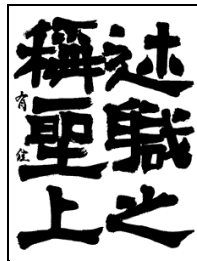 述職之
稱聖上
有